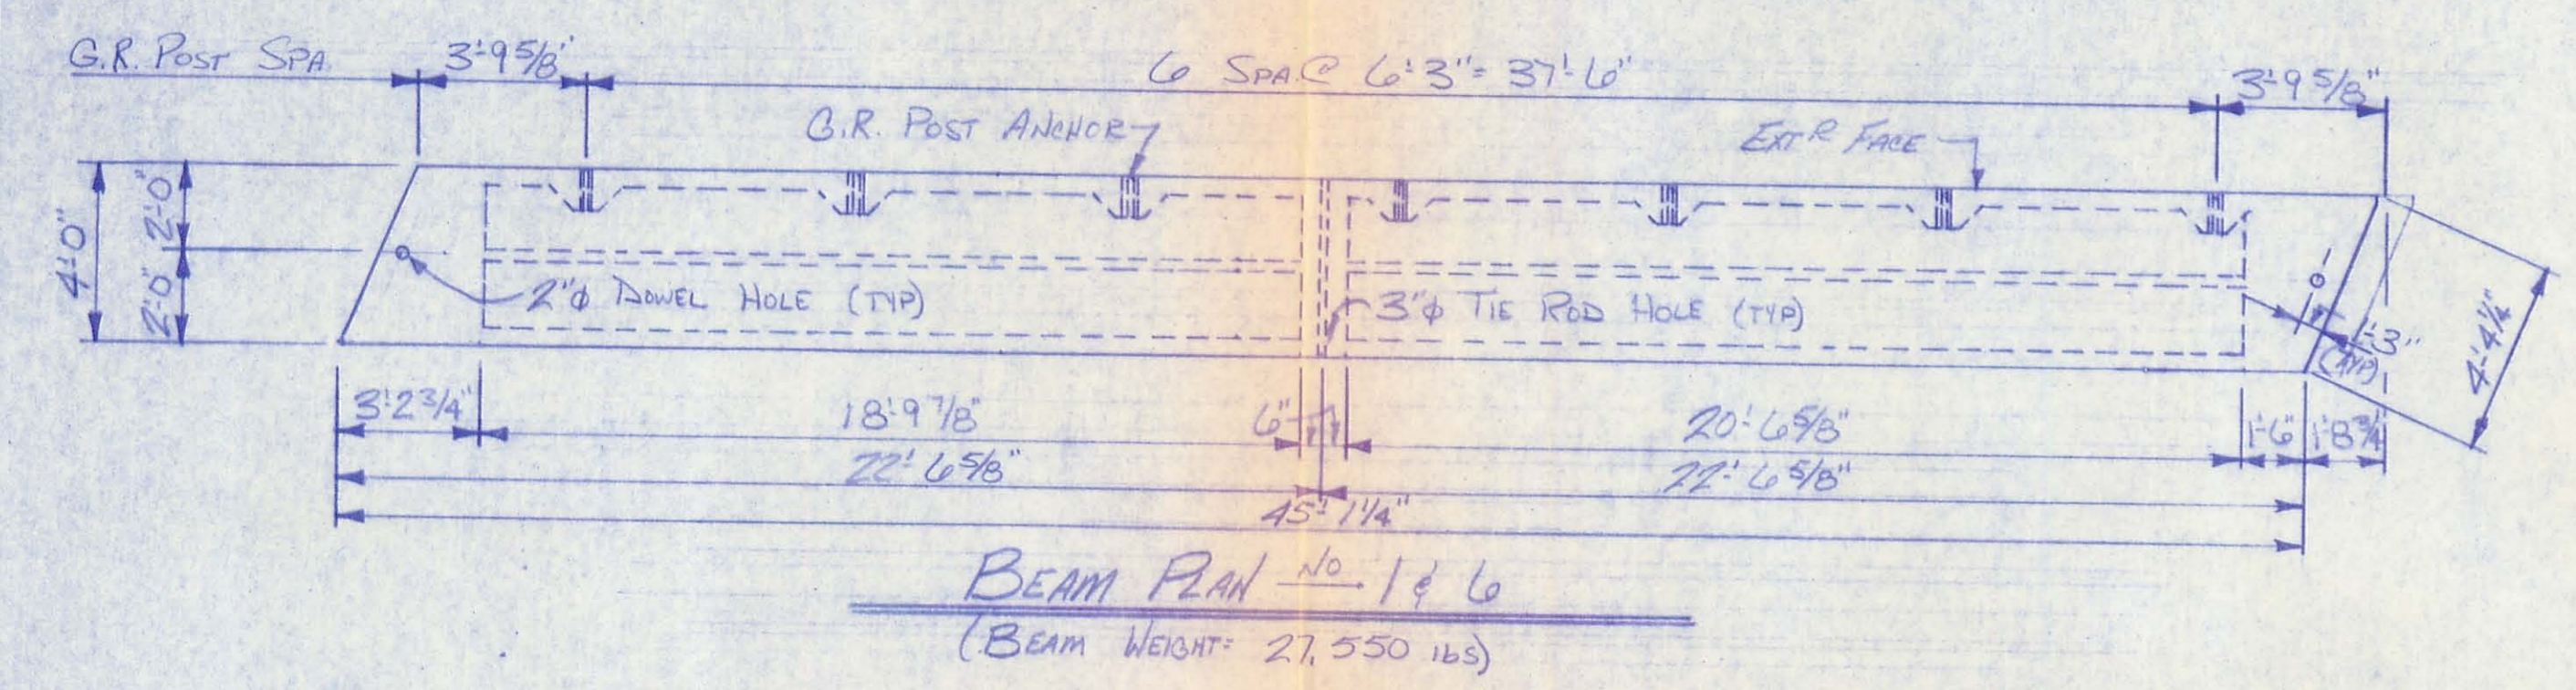 G.R. POST SPA.
3'-9 5/8"
6 SPA. @ 6'-3" = 37'-6"
3'-9 5/8"
G.R. POST ANCHOR
EXT'R FACE
4'-0"
2'-0"
2'-0"
2"ϕ DOWEL HOLE (TYP)
3"ϕ TIE ROD HOLE (TYP)
1'-3"
(TYP)
4'-4 1/4"
3'-2 3/4"
18'-9 7/8"
6"
20'-6 5/8"
1'-6"
1'-8 3/4"
22'-6 5/8"
22'-6 5/8"
45'-1 1/4"
BEAM PLAN NO. 1 & 6
(BEAM WEIGHT= 27,550 lbs)